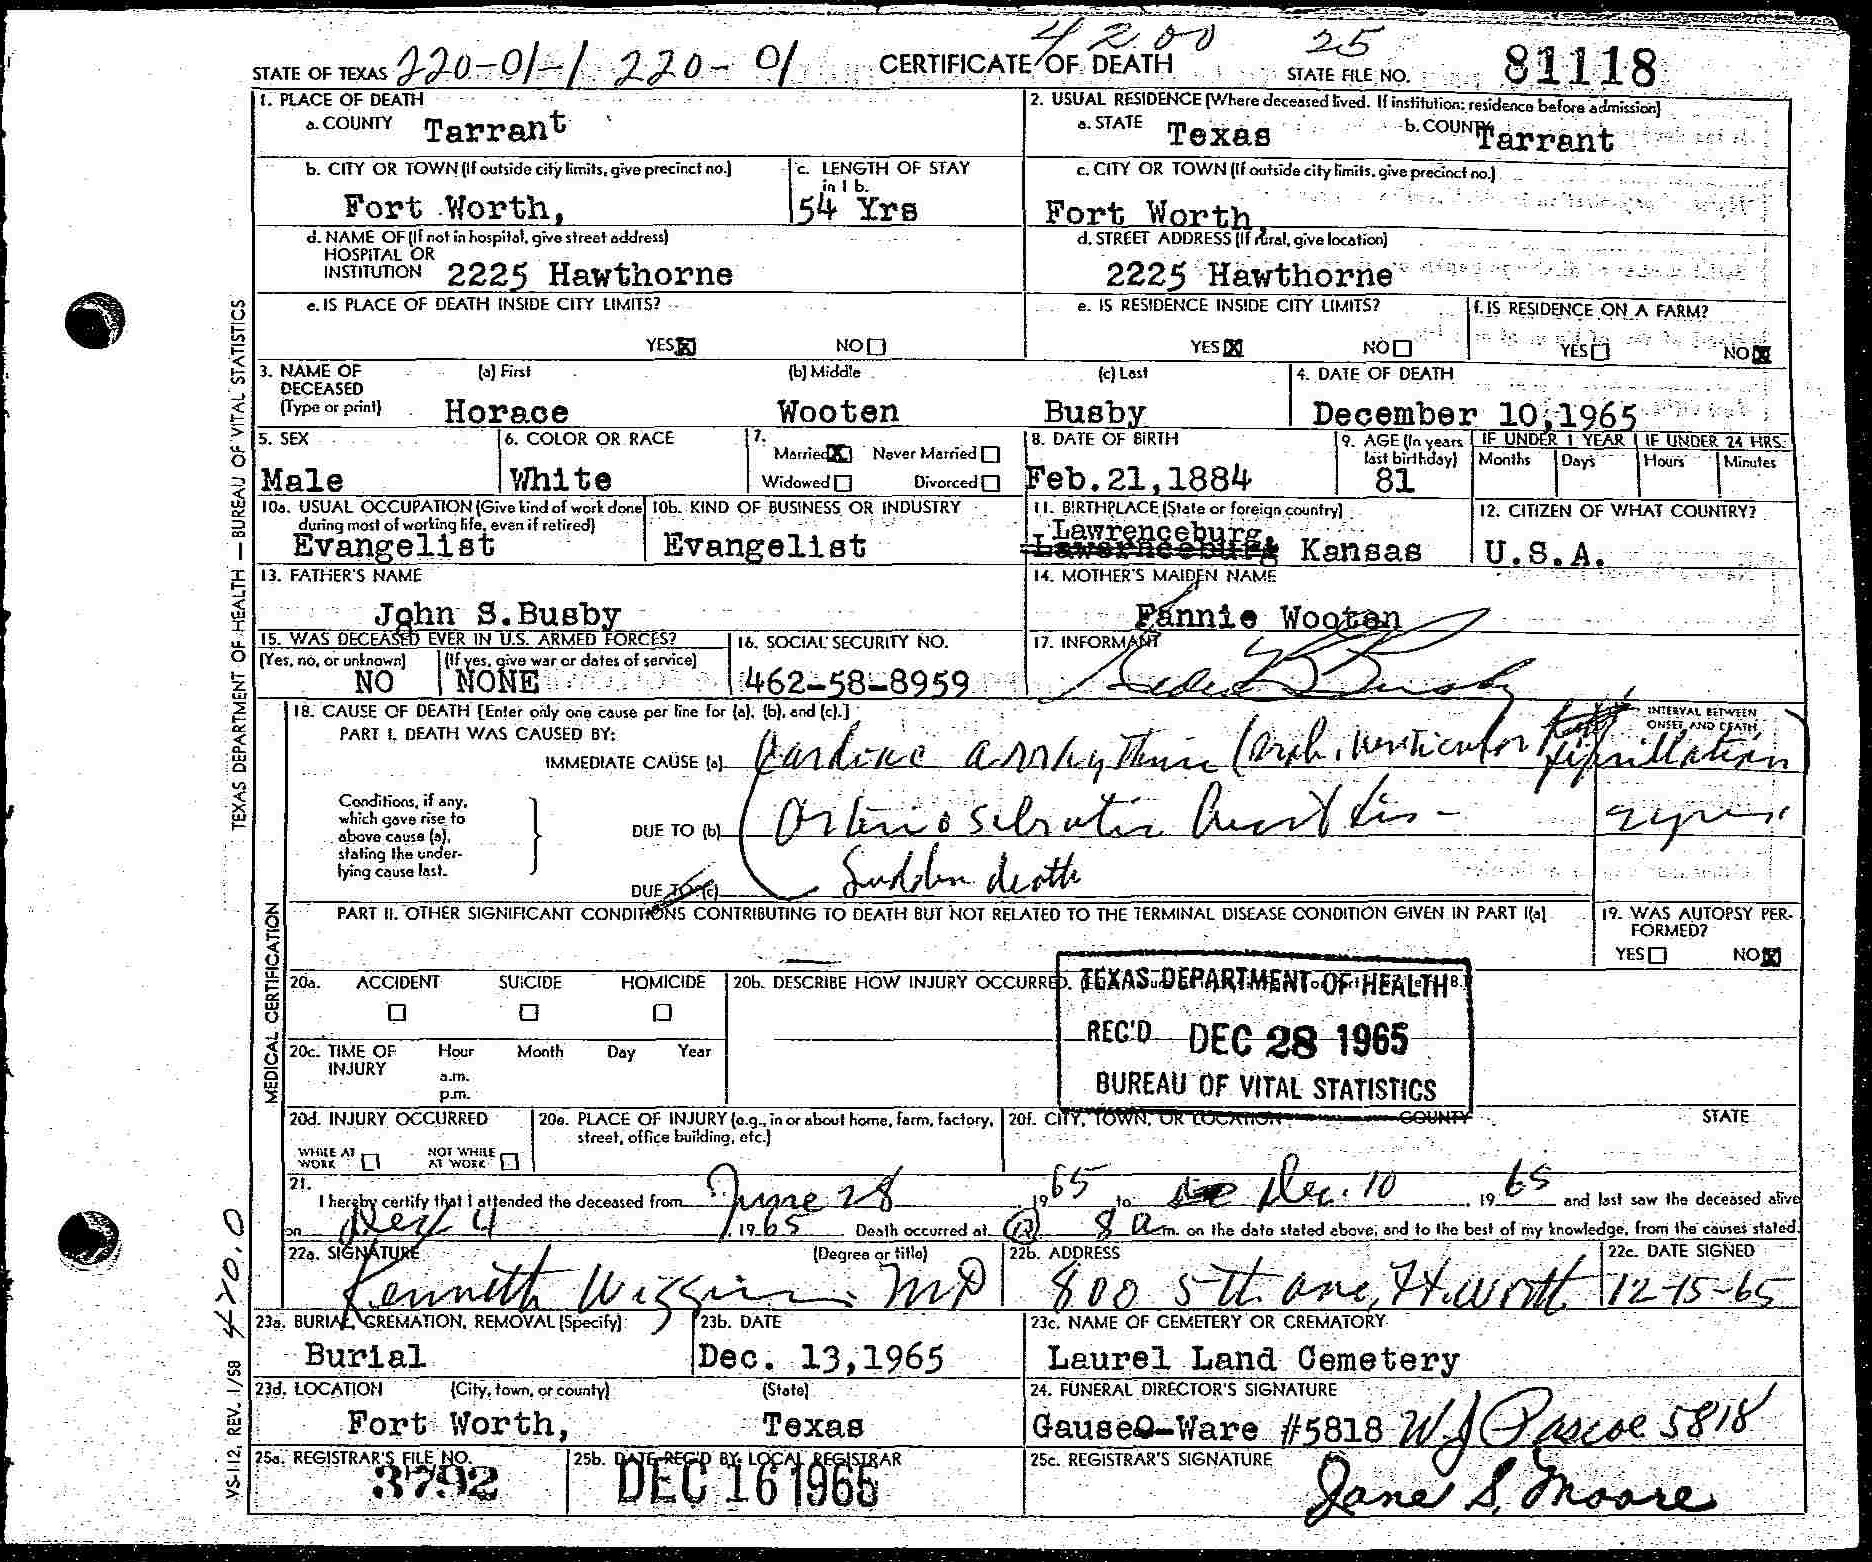 4200 25
STATE OF TEXAS 220-01-1 220-01 CERTIFICATE OF DEATH STATE FILE NO. 81118
1. PLACE OF DEATH
a. COUNTY Tarrant
2. USUAL RESIDENCE (Where deceased lived. If institution: residence before admission)
a. STATE Texas b. COUNTY Tarrant
b. CITY OR TOWN (If outside city limits, give precinct no.)
Fort Worth,
c. LENGTH OF STAY in 1 b.
54 Yrs
c. CITY OR TOWN (If outside city limits, give precinct no.)
Fort Worth,
d. NAME OF (If not in hospital, give street address)
HOSPITAL OR
INSTITUTION 2225 Hawthorne
d. STREET ADDRESS (If rural, give location)
2225 Hawthorne
e. IS PLACE OF DEATH INSIDE CITY LIMITS?
YES X NO
e. IS RESIDENCE INSIDE CITY LIMITS?
YES X NO
f. IS RESIDENCE ON A FARM?
YES NO X
3. NAME OF DECEASED (Type or print)
(a) First (b) Middle (c) Last
Horace Wooten Busby
4. DATE OF DEATH
December 10,1965
5. SEX
Male
6. COLOR OR RACE
White
7.
Married X Never Married
Widowed Divorced
8. DATE OF BIRTH
Feb.21,1884
9. AGE (In years last birthday)
81
IF UNDER 1 YEAR IF UNDER 24 HRS.
Months Days Hours Minutes
10a. USUAL OCCUPATION (Give kind of work done during most of working life, even if retired)
Evangelist
10b. KIND OF BUSINESS OR INDUSTRY
Evangelist
11. BIRTHPLACE (State or foreign country)
Lawrenceburg, Kansas
12. CITIZEN OF WHAT COUNTRY?
U.S.A.
13. FATHER'S NAME
John S.Busby
14. MOTHER'S MAIDEN NAME
Fannie Wooten
15. WAS DECEASED EVER IN U.S. ARMED FORCES?
(Yes, no, or unknown) (If yes, give war or dates of service)
NO NONE
16. SOCIAL SECURITY NO.
462-58-8959
17. INFORMANT
Busby
18. CAUSE OF DEATH [Enter only one cause per line for (a), (b), and (c).]
PART I. DEATH WAS CAUSED BY:
INTERVAL BETWEEN ONSET AND DEATH
IMMEDIATE CAUSE (a) Cardiac arrhythmia (prob. ventricular fibrillation
Conditions, if any, which gave rise to above cause (a), stating the underlying cause last.
DUE TO (b) Arteriosclerotic heart dis-
DUE TO (c) Sudden death
PART II. OTHER SIGNIFICANT CONDITIONS CONTRIBUTING TO DEATH BUT NOT RELATED TO THE TERMINAL DISEASE CONDITION GIVEN IN PART I(a)
19. WAS AUTOPSY PERFORMED?
YES NO X
20a. ACCIDENT SUICIDE HOMICIDE
20b. DESCRIBE HOW INJURY OCCURRED.
TEXAS DEPARTMENT OF HEALTH
REC'D DEC 28 1965
BUREAU OF VITAL STATISTICS
20c. TIME OF INJURY
Hour Month Day Year
a.m.
p.m.
20d. INJURY OCCURRED
WHILE AT WORK NOT WHILE AT WORK
20e. PLACE OF INJURY (e.g., in or about home, farm, factory, street, office building, etc.)
20f. CITY, TOWN, OR LOCATION COUNTY STATE
21.
I hereby certify that I attended the deceased from June 28 1965 to Dec. 10 1965 and last saw the deceased alive
on Dec 4 1965 Death occurred at 8 a m. on the date stated above, and to the best of my knowledge, from the causes stated.
22a. SIGNATURE (Degree or title)
Kenneth Wiggins MD
22b. ADDRESS
800 5th ave, Ft. Worth
22c. DATE SIGNED
12-15-65
23a. BURIAL, CREMATION, REMOVAL (Specify)
Burial
23b. DATE
Dec. 13,1965
23c. NAME OF CEMETERY OR CREMATORY
Laurel Land Cemetery
23d. LOCATION (City, town, or county) (State)
Fort Worth, Texas
24. FUNERAL DIRECTOR'S SIGNATURE
Gause-Ware #5818 W.J Pascoe 5818
25a. REGISTRAR'S FILE NO.
3792
25b. DATE REC'D BY LOCAL REGISTRAR
DEC 16 1965
25c. REGISTRAR'S SIGNATURE
Jane S. Moore
TEXAS DEPARTMENT OF HEALTH — BUREAU OF VITAL STATISTICS
MEDICAL CERTIFICATION
VS-112, REV. 1/58 420.0